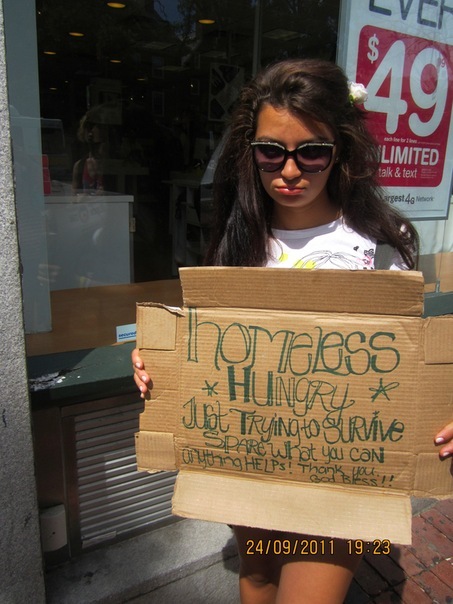 EVER
$49
each line for 2 lines
UNLIMITED
talk & text
largest 4G Network
homeless
* HUNGRY *
JUST TRying to SURVIVE
SPARE WHAT you CAN
anything HELPS! Thank you
GOD Bless!!
24/09/2011 19:23